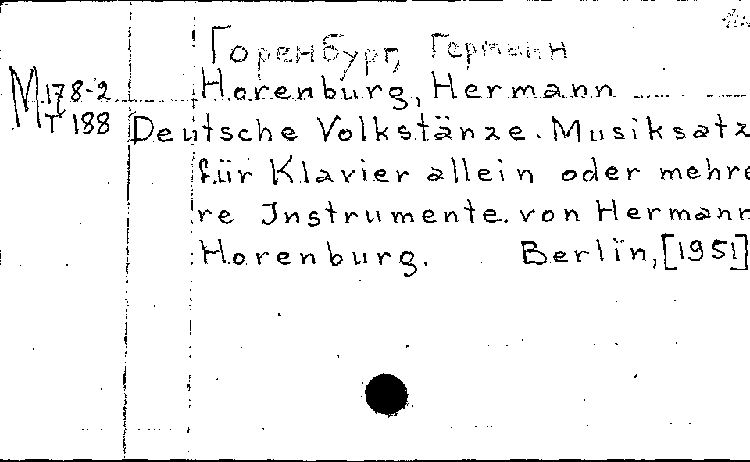 Горенбург, Герман
M 178-2
T 188
Horenburg, Hermann
Deutsche Volkstänze. Musiksatz
für Klavier allein oder mehre
re Instrumente. von Hermann
Horenburg. Berlin, [1951]